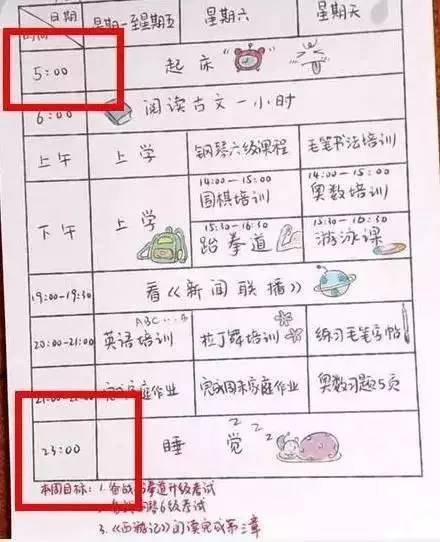 日期 星期一至星期五 星期六 星期天
时间
5:00 起床
6:00 阅读古文一小时
上午 上学 钢琴六级课程 毛笔书法培训
下午 上学 14:00-15:00 围棋培训 14:00-15:00 奥数培训
15:30-16:30 跆拳道 15:30-16:30 游泳课
19:00-19:30 看《新闻联播》
ABC...
20:00-21:00 英语培训 拉丁舞培训 练习毛笔字帖
家庭作业 完成周末家庭作业 奥数习题5页
23:00 睡觉 zzz
本周目标: 1. 备战跆拳道升级考试
6级考试
3.《西游记》阅读完成第三章